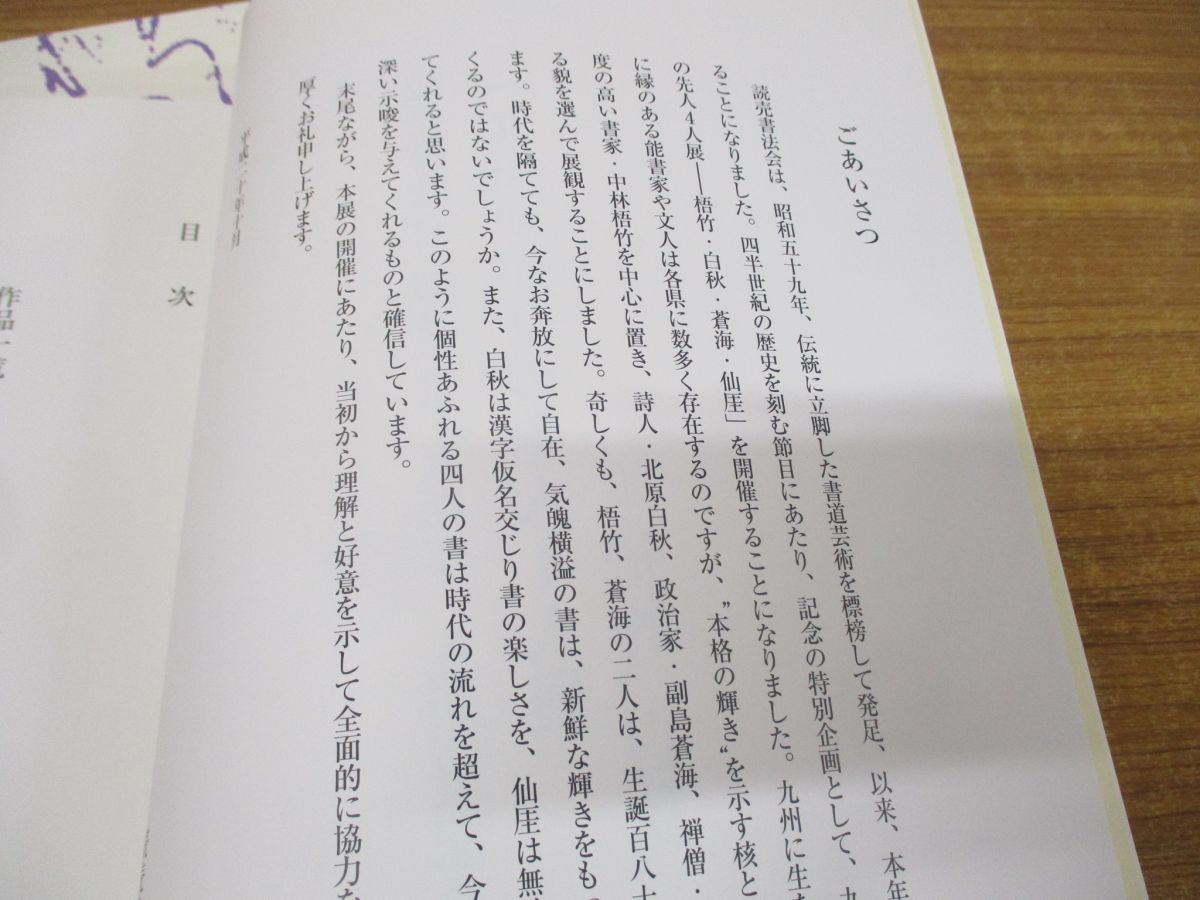 ごあいさつ
読売書法会は、昭和五十九年、伝統に立脚した書道芸術を標榜して発足、以来、本年
ることになりました。四半世紀の歴史を刻む節目にあたり、記念の特別企画として、九
の先人4人展――梧竹・白秋・蒼海・仙厓」を開催することになりました。九州に生
に縁のある能書家や文人は各県に数多く存在するのですが、〝本格の輝き〟を示す核と
度の高い書家・中林梧竹を中心に置き、詩人・北原白秋、政治家・副島蒼海、禅僧・
る貌を選んで展観することにしました。奇しくも、梧竹、蒼海の二人は、生誕百八十
ます。時代を隔てても、今なお奔放にして自在、気魄横溢の書は、新鮮な輝きをも
くるのではないでしょうか。また、白秋は漢字仮名交じり書の楽しさを、仙厓は無
てくれると思います。このように個性あふれる四人の書は時代の流れを超えて、今
深い示唆を与えてくれるものと確信しています。
末尾ながら、本展の開催にあたり、当初から理解と好意を示して全面的に協力
厚くお礼申し上げます。
平成二十年十月
目次
作品一覧